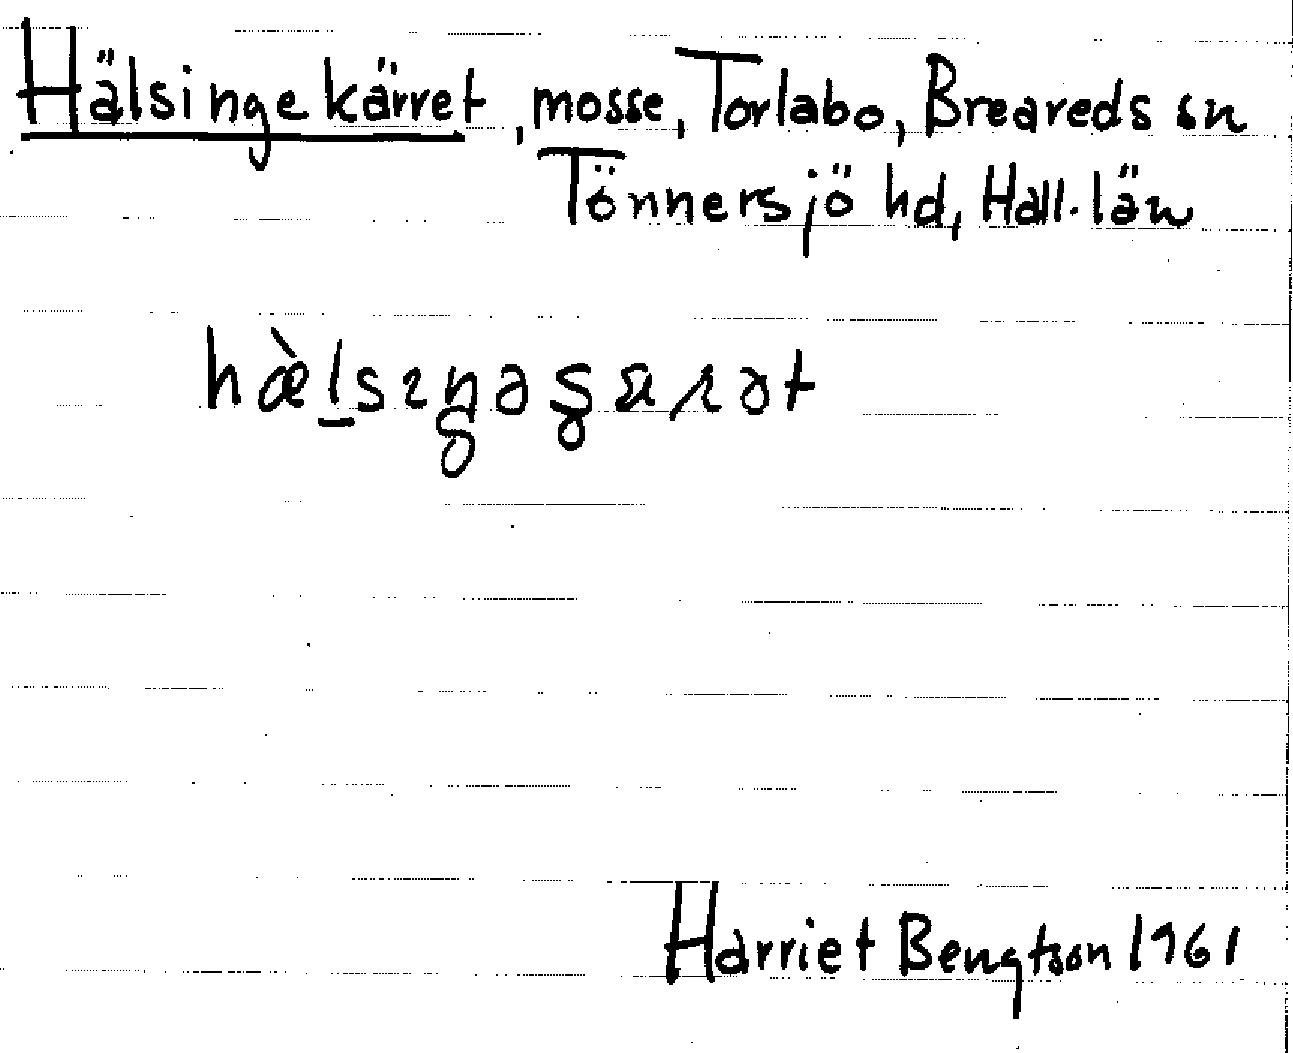 Hälsingekärret, mosse, Torlabo, Breareds sn
Tönnersjö hd, Hall. län
Harriet Bengtson 1961